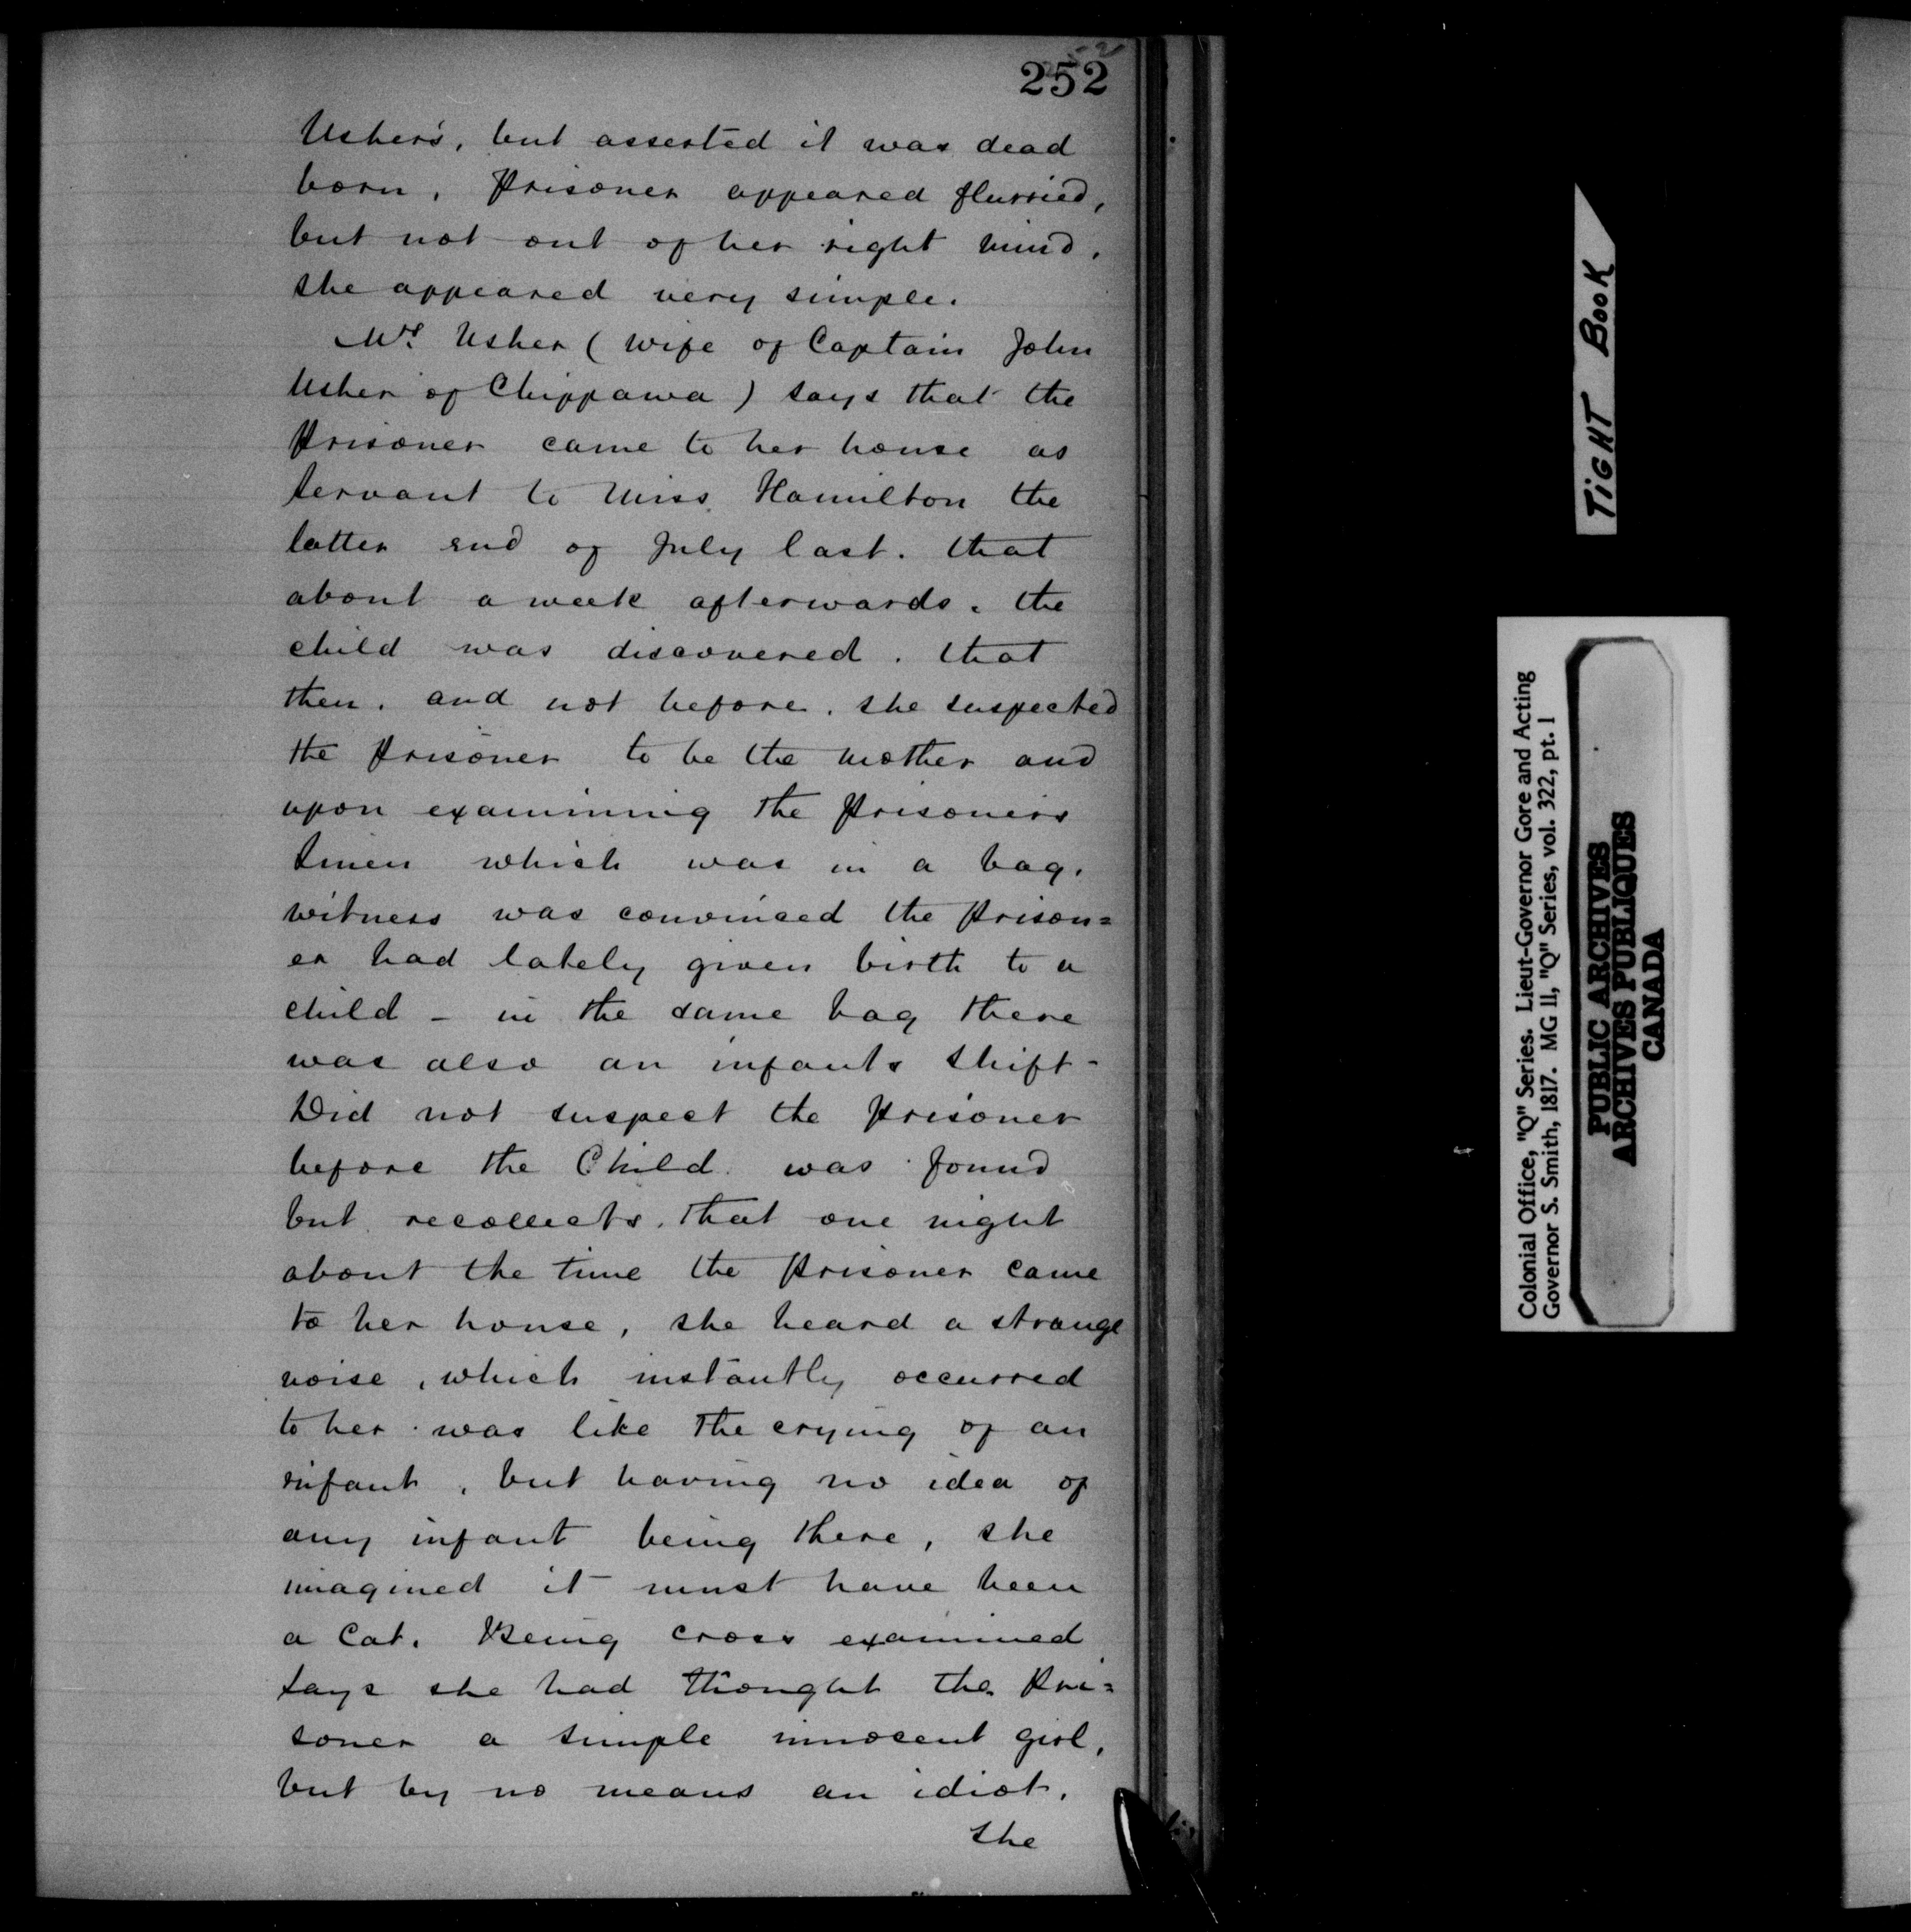 252
Usher's, but asserted it was dead
born, Prisoner appeared flurried,
but not out of her right mind.
she appeared very simple.
Mrs. Usher (wife of Captain John
Usher of Chippawa) says that the
Prisoner came to her house as
servant to Miss Hamilton the
latter end of July last. that
about a week afterwards. the
child was discovered. that
then, and not before, she suspected
the Prisoner to be the mother and
upon examining the Prisoners
linen which was in a bag.
witness was convinced the Prison=
er had lately given birth to a
child - in the same bag there
was also an infants shift -
Did not suspect the Prisoner
before the Child was found
but recollects, that one night
about the time the Prisoner came
to her house, she heard a strange
noise, which instantly occurred
to her was like the crying of an
infant, but having no idea of
any infant being there, she
imagined it must have been
a Cat. Being cross examined
says she had thought the Pri=
soner a simple innocent girl,
but by no means an idiot.
the
TIGHT BOOK
Colonial Office, "Q" Series. Lieut-Governor Gore and Acting
Governor S. Smith, 1817. MG 11, "Q" Series, vol. 322, pt. 1
PUBLIC ARCHIVES
ARCHIVES PUBLIQUES
CANADA